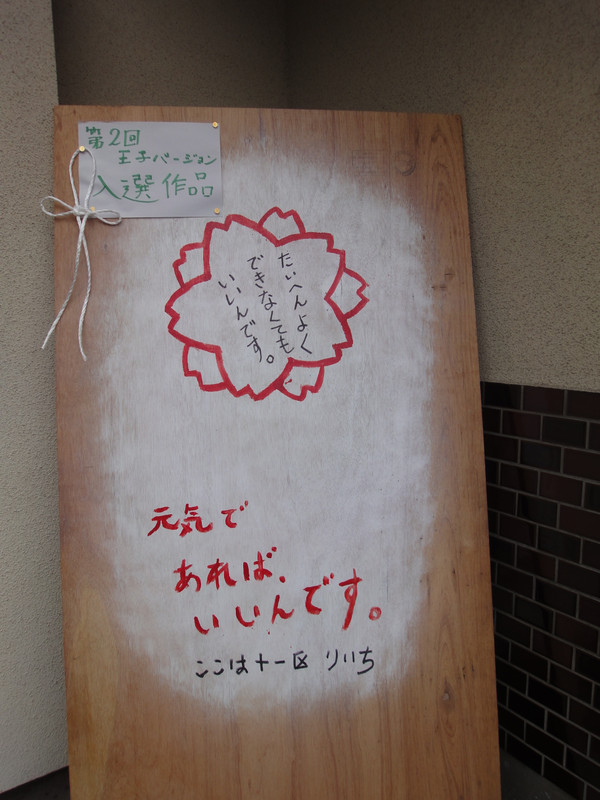 第2回
王子バージョン
入選作品
たいへんよく
できなくても
いいんです。
元気で
あれば、
いいんです。
ここは十一区 りいち